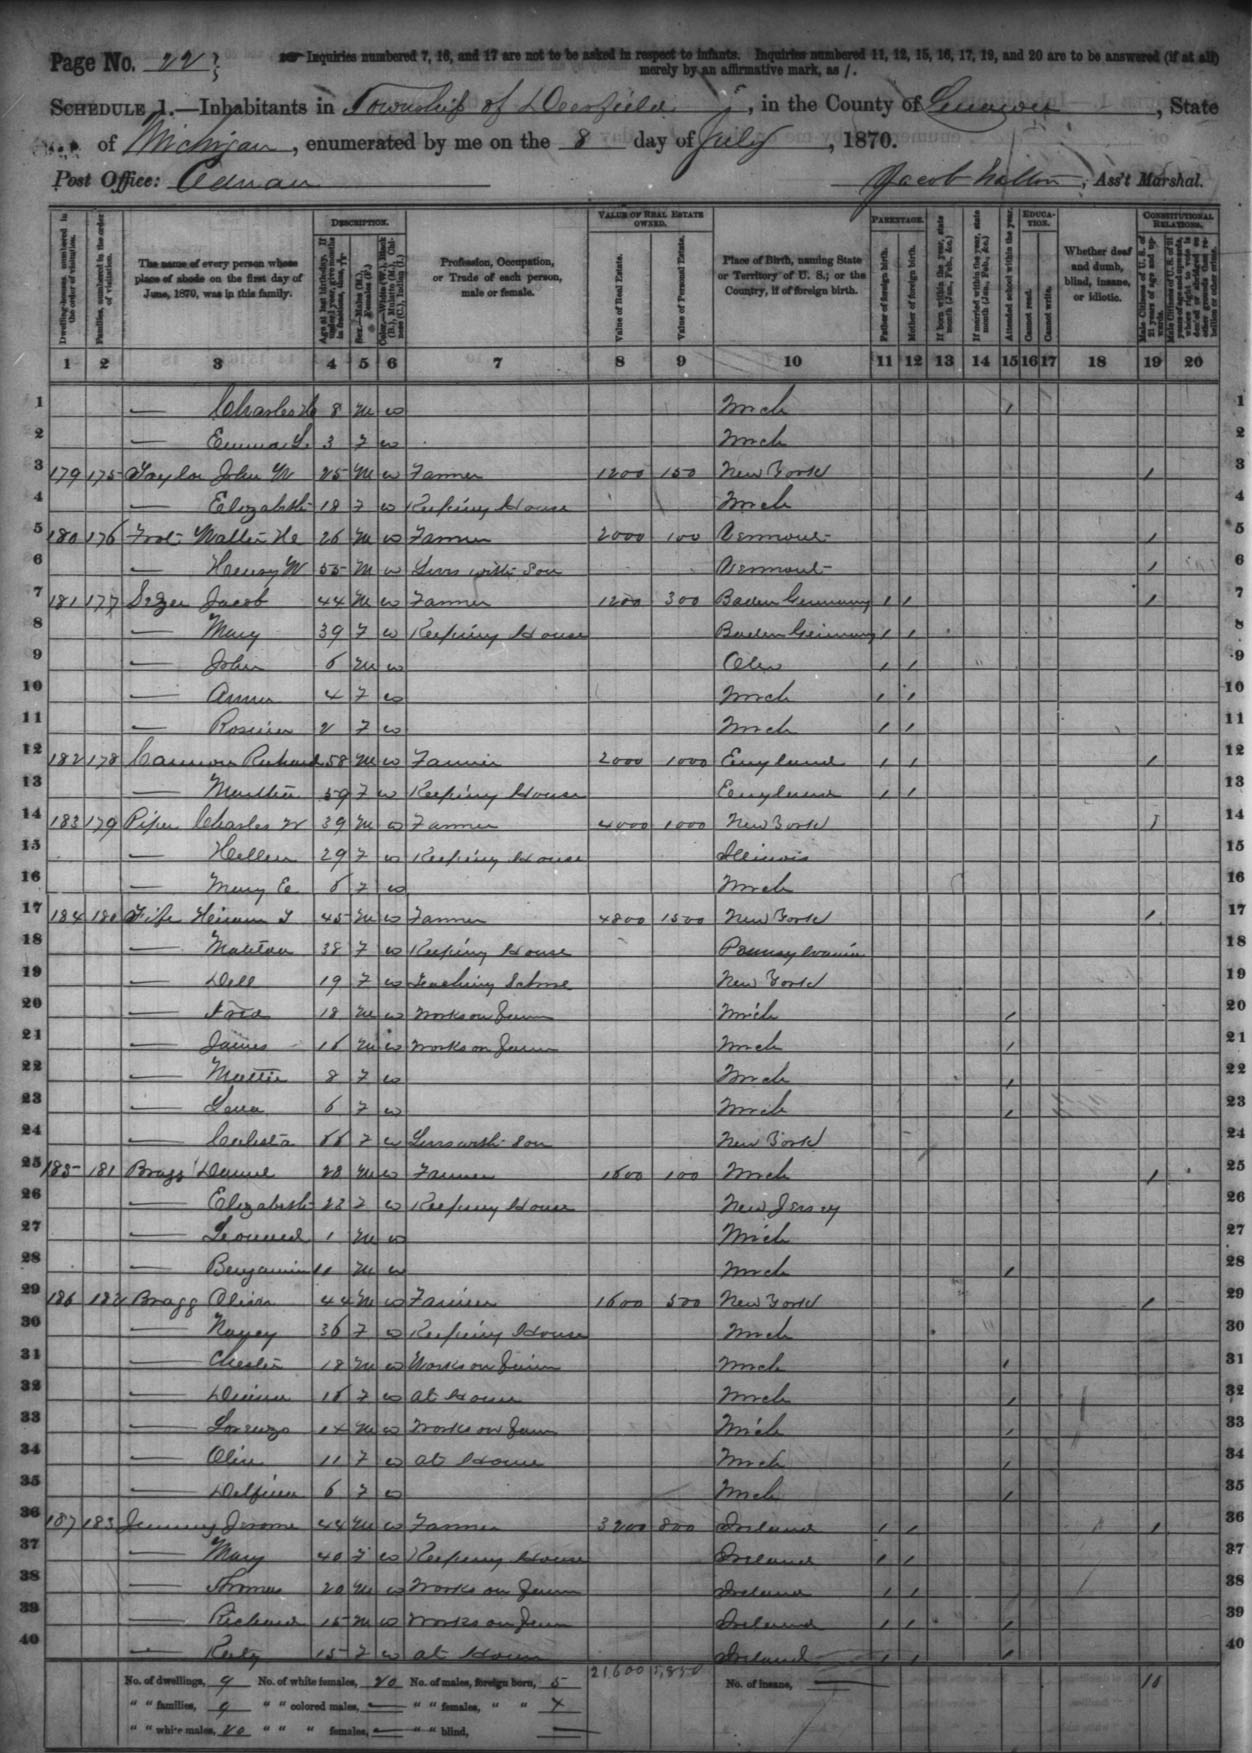 Page No. 22
Inquiries numbered 7, 16, and 17 are not to be asked in respect to infants. Inquiries numbered 11, 12, 15, 16, 17, 19, and 20 are to be answered (if at all)
merely by an affirmative mark, as /.
SCHEDULE 1.—Inhabitants in Township of Deerfield, in the County of Lenawee, State
of Michigan, enumerated by me on the 8 day of July, 1870.
Post Office: Adrian
Jacob, Ass't Marshal.
DESCRIPTION. VALUE OF REAL ESTATE OWNED. PARENTAGE. EDUCATION. CONSTITUTIONAL RELATIONS.
Dwelling-houses, numbered in the order of visitation.
Families, numbered in the order of visitation.
The name of every person whose place of abode on the first day of June, 1870, was in this family.
Age at last birthday. If under 1 year, give months in fractions, thus, 3/12.
Sex.—Males (M.), Females (F.)
Color.—White (W.), Black (B.), Mulatto (M.), Chinese (C.), Indian (I.)
Profession, Occupation, or Trade of each person, male or female.
Value of Real Estate.
Value of Personal Estate.
Place of Birth, naming State or Territory of U. S.; or the Country, if of foreign birth.
Father of foreign birth.
Mother of foreign birth.
If born within the year, state month (Jan., Feb., &c.)
If married within the year, state month (Jan., Feb., &c.)
Attended school within the year.
Cannot read.
Cannot write.
Whether deaf and dumb, blind, insane, or idiotic.
Male Citizens of U. S. of 21 years of age and upwards.
1 2 3 4 5 6 7 8 9 10 11 12 13 14 15 16 17 18 19 20
1 — Charles H 8 M W Mich / 1
2 — Emma L. 3 F W Mich 2
3 179 175 Taylor John W 25 M W Farmer 1200 150 New York / 3
4 — Elizabeth 18 F W Keeping House Mich 4
5 180 176 Walter He 26 M W Farmer 2000 100 Vermont / 5
6 — Henry W 55 M W Lives with Son Vermont / 6
7 181 177 Jacob 44 M W Farmer 1200 300 Baden Germany / / / 7
8 — Mary 39 F W Keeping House Baden Germany / / 8
9 — John 6 M W Ohio / / 9
10 — Anna 4 F W Mich / / 10
11 — Rosina 2 F W Mich / / 11
12 182 178 Cannon Richard 58 M W Farmer 2000 1000 England / / / 12
13 — Martha 59 F W Keeping House England / / 13
14 183 179 Piper Charles W 39 M W Farmer 4000 1000 New York / 14
15 — Hellen 29 F W Keeping House Illinois 15
16 — Mary E 6 F W Mich 16
17 184 180 Fife Hiram T 45 M W Farmer 4800 1500 New York / 17
18 — Matilda 38 F W Keeping House Pennsylvania 18
19 — Dell 19 F W Teaching School New York 19
20 — Fred 18 M W Works on Farm Mich / 20
21 — James 16 M W Works on Farm Mich / 21
22 — Mattie 8 F W Mich / 22
23 — Lena 6 F W Mich / 23
24 — Calista 66 F W Lives with Son New York 24
25 185 181 Bragg Daniel 28 M W Farmer 1600 100 Mich / 25
26 — Elizabeth 28 F W Keeping House New Jersey 26
27 — Leonard 1 M W Mich 27
28 — Benjamin 11 M W Mich / 28
29 186 182 Bragg Oliver 44 M W Farmer 1600 500 New York / 29
30 — Nancy 36 F W Keeping House Mich 30
31 — Chester 18 M W Works on Farm Mich / 31
32 — 16 F W at Home Mich / 32
33 — Lorenzo 14 M W Works on Farm Mich / 33
34 — Olive 11 F W at Home Mich / 34
35 — Delfina 6 F W Mich / 35
36 187 183 Jerome 44 M W Farmer 3200 800 Ireland / / / 36
37 — Mary 40 F W Keeping House Ireland / / 37
38 — Thomas 20 M W Works on Farm Ireland / / 38
39 — Richard 15 M W Works on Farm Ireland / / / 39
40 — Katy 15 F W at Home Ireland / / / 40
No. of dwellings, 9 No. of white females, 20 No. of males, foreign born, 5 21,600 5,850 No. of insane, — 10
" " families, 9 " " colored males, — " " females, " " 4
" " white males, 20 " " " females, — " " blind, —